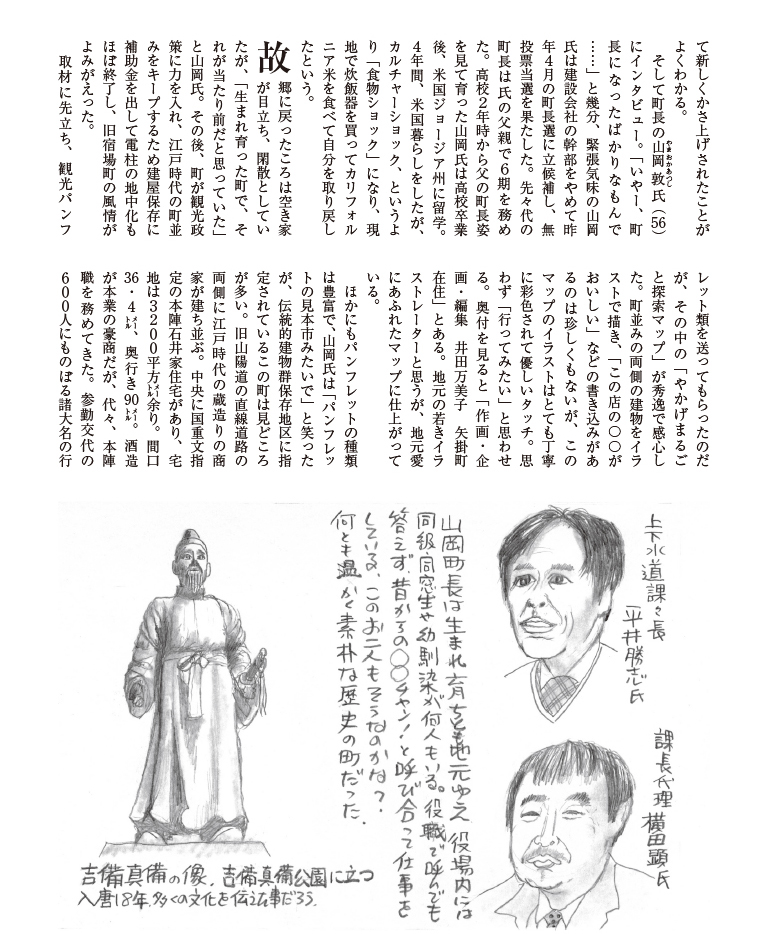 て新しくかさ上げされたことが
よくわかる。
　そして町長の山岡敦氏（56）
やまおかあつし
にインタビュー。「いやー、町
長になったばかりなもんで
……」と幾分、緊張気味の山岡
氏は建設会社の幹部をやめて昨
年４月の町長選に立候補し、無
投票当選を果たした。先々代の
町長は氏の父親で６期を務め
た。高校２年時から父の町長姿
を見て育った山岡氏は高校卒業
後、米国ジョージア州に留学。
４年間、米国暮らしをしたが、
カルチャーショック、というよ
り「食物ショック」になり、現
地で炊飯器を買ってカリフォル
ニア米を食べて自分を取り戻し
たという。
故郷に戻ったころは空き家
が目立ち、閑散としてい
たが、「生まれ育った町で、そ
れが当たり前だと思っていた」
と山岡氏。その後、町が観光政
策に力を入れ、江戸時代の町並
みをキープするため建屋保存に
補助金を出して電柱の地中化も
ほぼ終了し、旧宿場町の風情が
よみがえった。
　取材に先立ち、観光パンフ
レット類を送ってもらったのだ
が、その中の「やかげまるご
と探索マップ」が秀逸で感心し
た。町並みの両側の建物をイラ
ストで描き、「この店の〇〇が
おいしい」などの書き込みがあ
るのは珍しくもないが、この
マップのイラストはとても丁寧
に彩色されて優しいタッチ。思
わず「行ってみたい」と思わせ
る。奥付を見ると「作画・企
画・編集　井田万美子　矢掛町
在住」とある。地元の若きイラ
ストレーターと思うが、地元愛
にあふれたマップに仕上がって
いる。
　ほかにもパンフレットの種類
は豊富で、山岡氏は「パンフレッ
トの見本市みたいで」と笑った
が、伝統的建物群保存地区に指
定されているこの町は見どころ
が多い。旧山陽道の直線道路の
両側に江戸時代の蔵造りの商
家が建ち並ぶ。中央に国重文指
定の本陣石井家住宅があり、宅
地は３２００平方㍍余り。間口
36・４㍍、奥行き90㍍。酒造
が本業の豪商だが、代々、本陣
職を務めてきた。参勤交代の
６００人にものぼる諸大名の行
上下水道課々長
平井勝志氏
課長代理 横田顕氏
山岡町長は生まれ育ちとも地元ゆえ 役場内には
同級・同窓生や幼馴染が何人もいる。役職で呼んでも
答えず、昔からの〇〇チャン!と呼び合って仕事を
している、このお二人もそうなのかな?
何とも温かく素朴な歴史の町だった.
吉備真備の像. 吉備真備公園に立つ
入唐18年.多くの文化を伝えた事だろう.